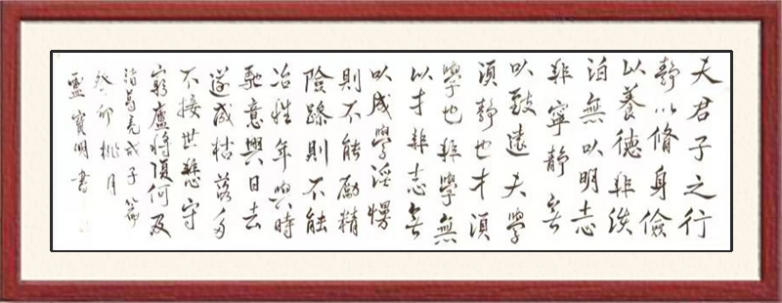 夫君子之行
静以脩身儉
以養德非淡
泊無以明志
非寧静無
以致遠夫學
須静也才須
學也非學無
以才非志無
以成學淫慢
則不能勵精
險躁則不能
冶性年與時
馳意與日去
遂成枯落多
不接世悲守
窮廬將復何及
諸葛亮戒子篇
癸卯桃月
寶明書